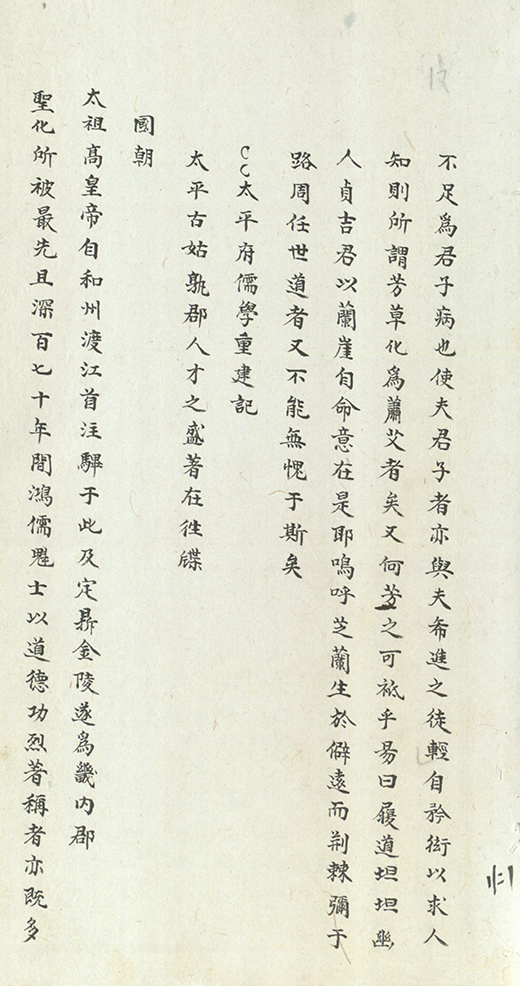 不足爲君子病也使夫君子者亦與夫希進之徒輕自矜衒以求人
知則所謂芳草化爲蕭艾者矣又何芳之可袛乎易曰履道坦坦幽
人貞吉君以蘭崖自命意在是耶嗚呼芝蘭生於僻遠而荆棘彌于
路周任世道者又不能無愧于斯矣
太平府儒學重建記
太平古姑孰郡人才之盛著在徃牒
國朝
太祖高皇帝自和州渡江首注驆于此及定鼎金陵遂爲畿内郡
聖化所被最先且深百七十年間鴻儒魁士以道德功烈著稱者亦既多